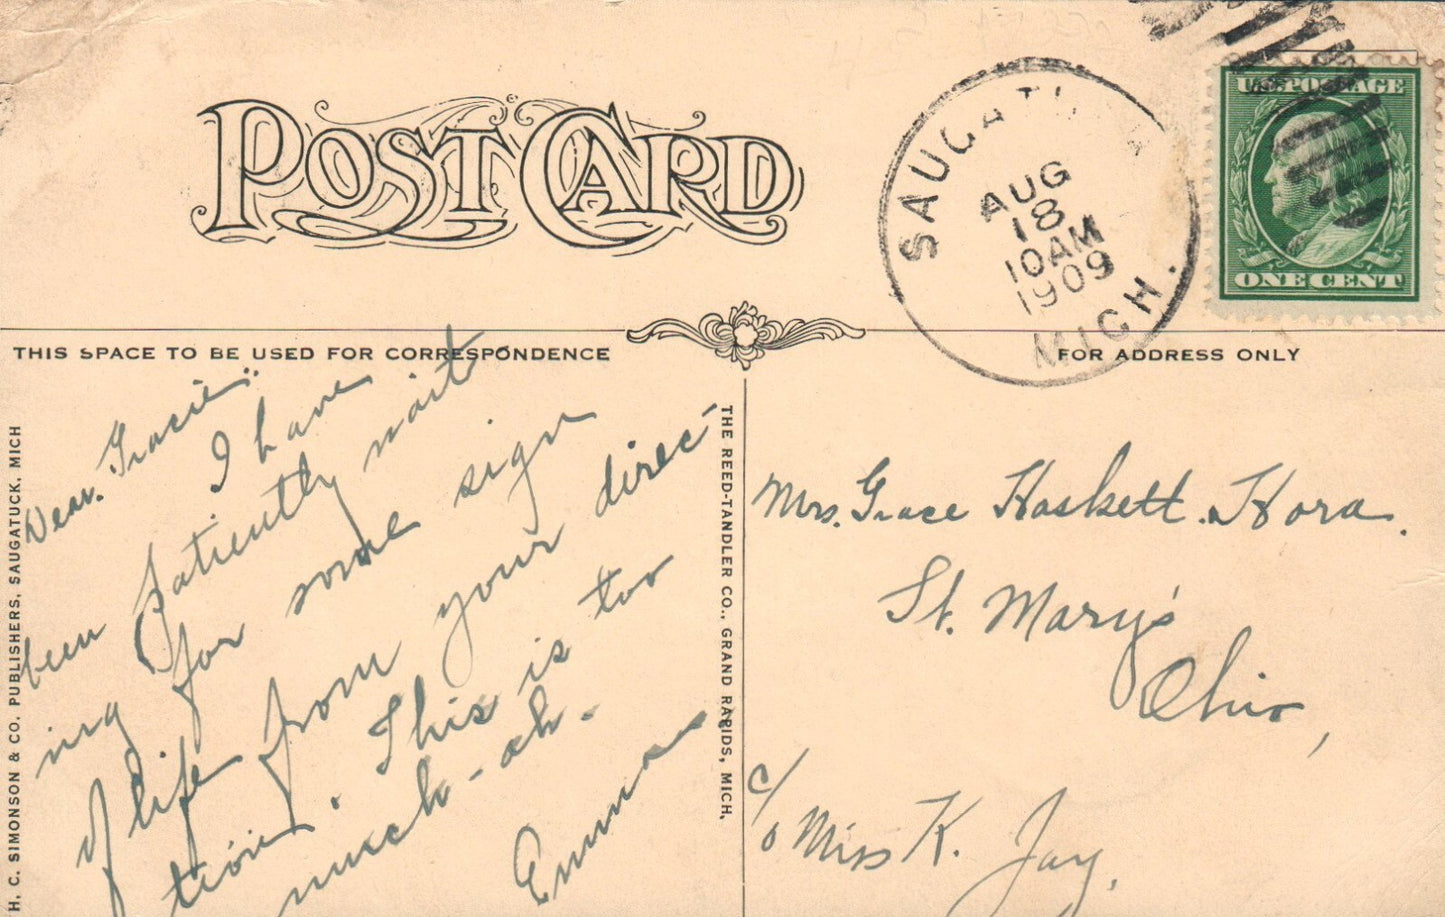 POST CARD
SAUGATUCK
AUG
18
10AM
1909
MICH.
U.S. POSTAGE
ONE CENT
THIS SPACE TO BE USED FOR CORRESPONDENCE
FOR ADDRESS ONLY
H. C. SIMONSON & CO. PUBLISHERS, SAUGATUCK, MICH
Dear. Gracie:
I have
been patiently wait
ing for some sign
of life from your direc
tion. This is too
much - oh -
Emma
THE REED-TANDLER CO., GRAND RAPIDS, MICH.
Mrs. Grace Haskett. Hora.
St. Mary's
Ohio,
c/o Miss K. Jay,